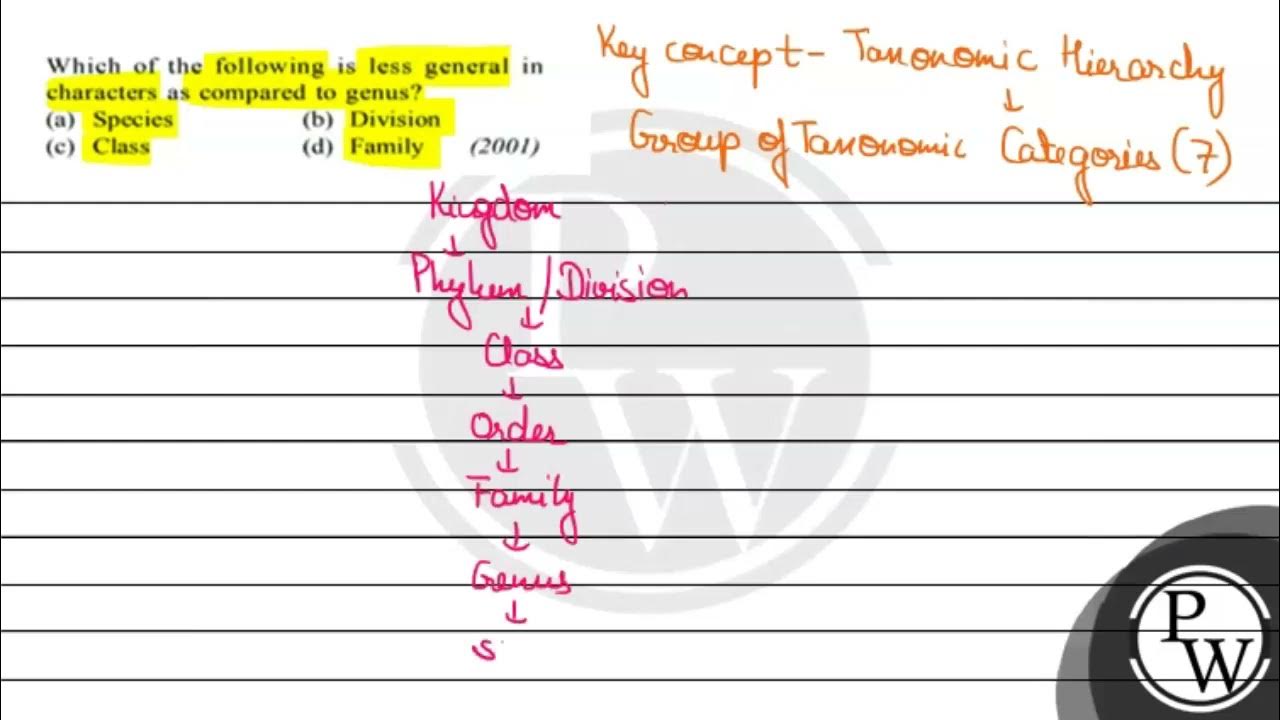 Which of the following is less general in
characters as compared to genus?
(a) Species (b) Division
(c) Class (d) Family (2001)
Key concept - Taxonomic Hierarchy
↓
Group of Taxonomic Categories (7)
Kingdom
↓
Phylum / Division
↓
Class
↓
Order
↓
Family
↓
Genus
↓
S
PW
PW